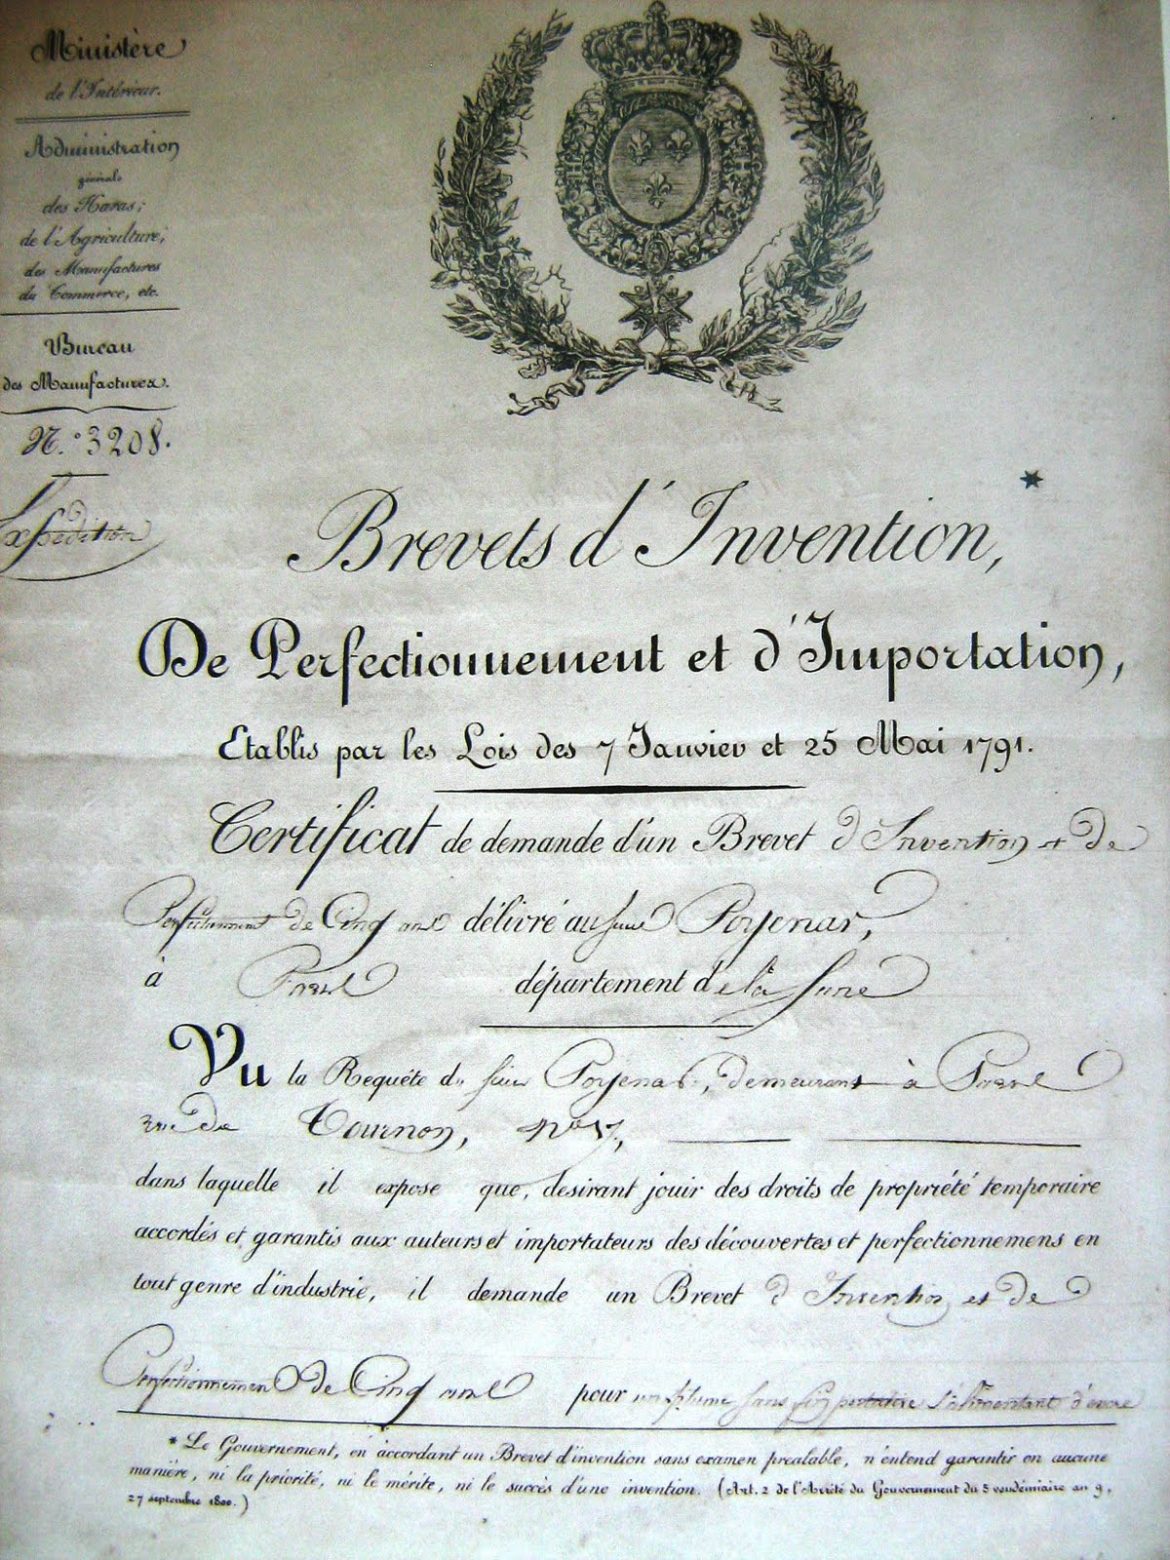 Ministère
de l'Intérieur.
Administration
générale
des Haras;
de l'Agriculture;
des Manufactures
du Commerce, etc.
Bureau
des Manufactures.
N.° 3208.
Expédition
*
Brevets d'Invention,
De Perfectionnement et d'Importation,
Etablis par les Lois des 7 Janvier et 25 Mai 1791.
Certificat de demande d'un Brevet d'Invention et de
Perfectionnement de Cinq ans délivré au sieur Poyenar,
à Paris département de la Seine
Vu la Requête du sieur Poyenar, demeurant à Paris
rue de Tournon,
dans laquelle il expose que, desirant jouir des droits de propriété temporaire
accordés et garantis aux auteurs et importateurs des découvertes et perfectionnemens en
tout genre d'industrie, il demande un Brevet d'Invention et de
Perfectionnement de Cinq ans pour une plume sans fin portative s'alimentant d'encre
* Le Gouvernement, en accordant un Brevet d'invention sans examen prealable, n'entend garantir en aucune
manière, ni la priorité, ni le mérite, ni le succès d'une invention. (Art. 2 de l'Arrêté du Gouvernement du 5 vendémiaire an 9,
27 septembre 1800.)